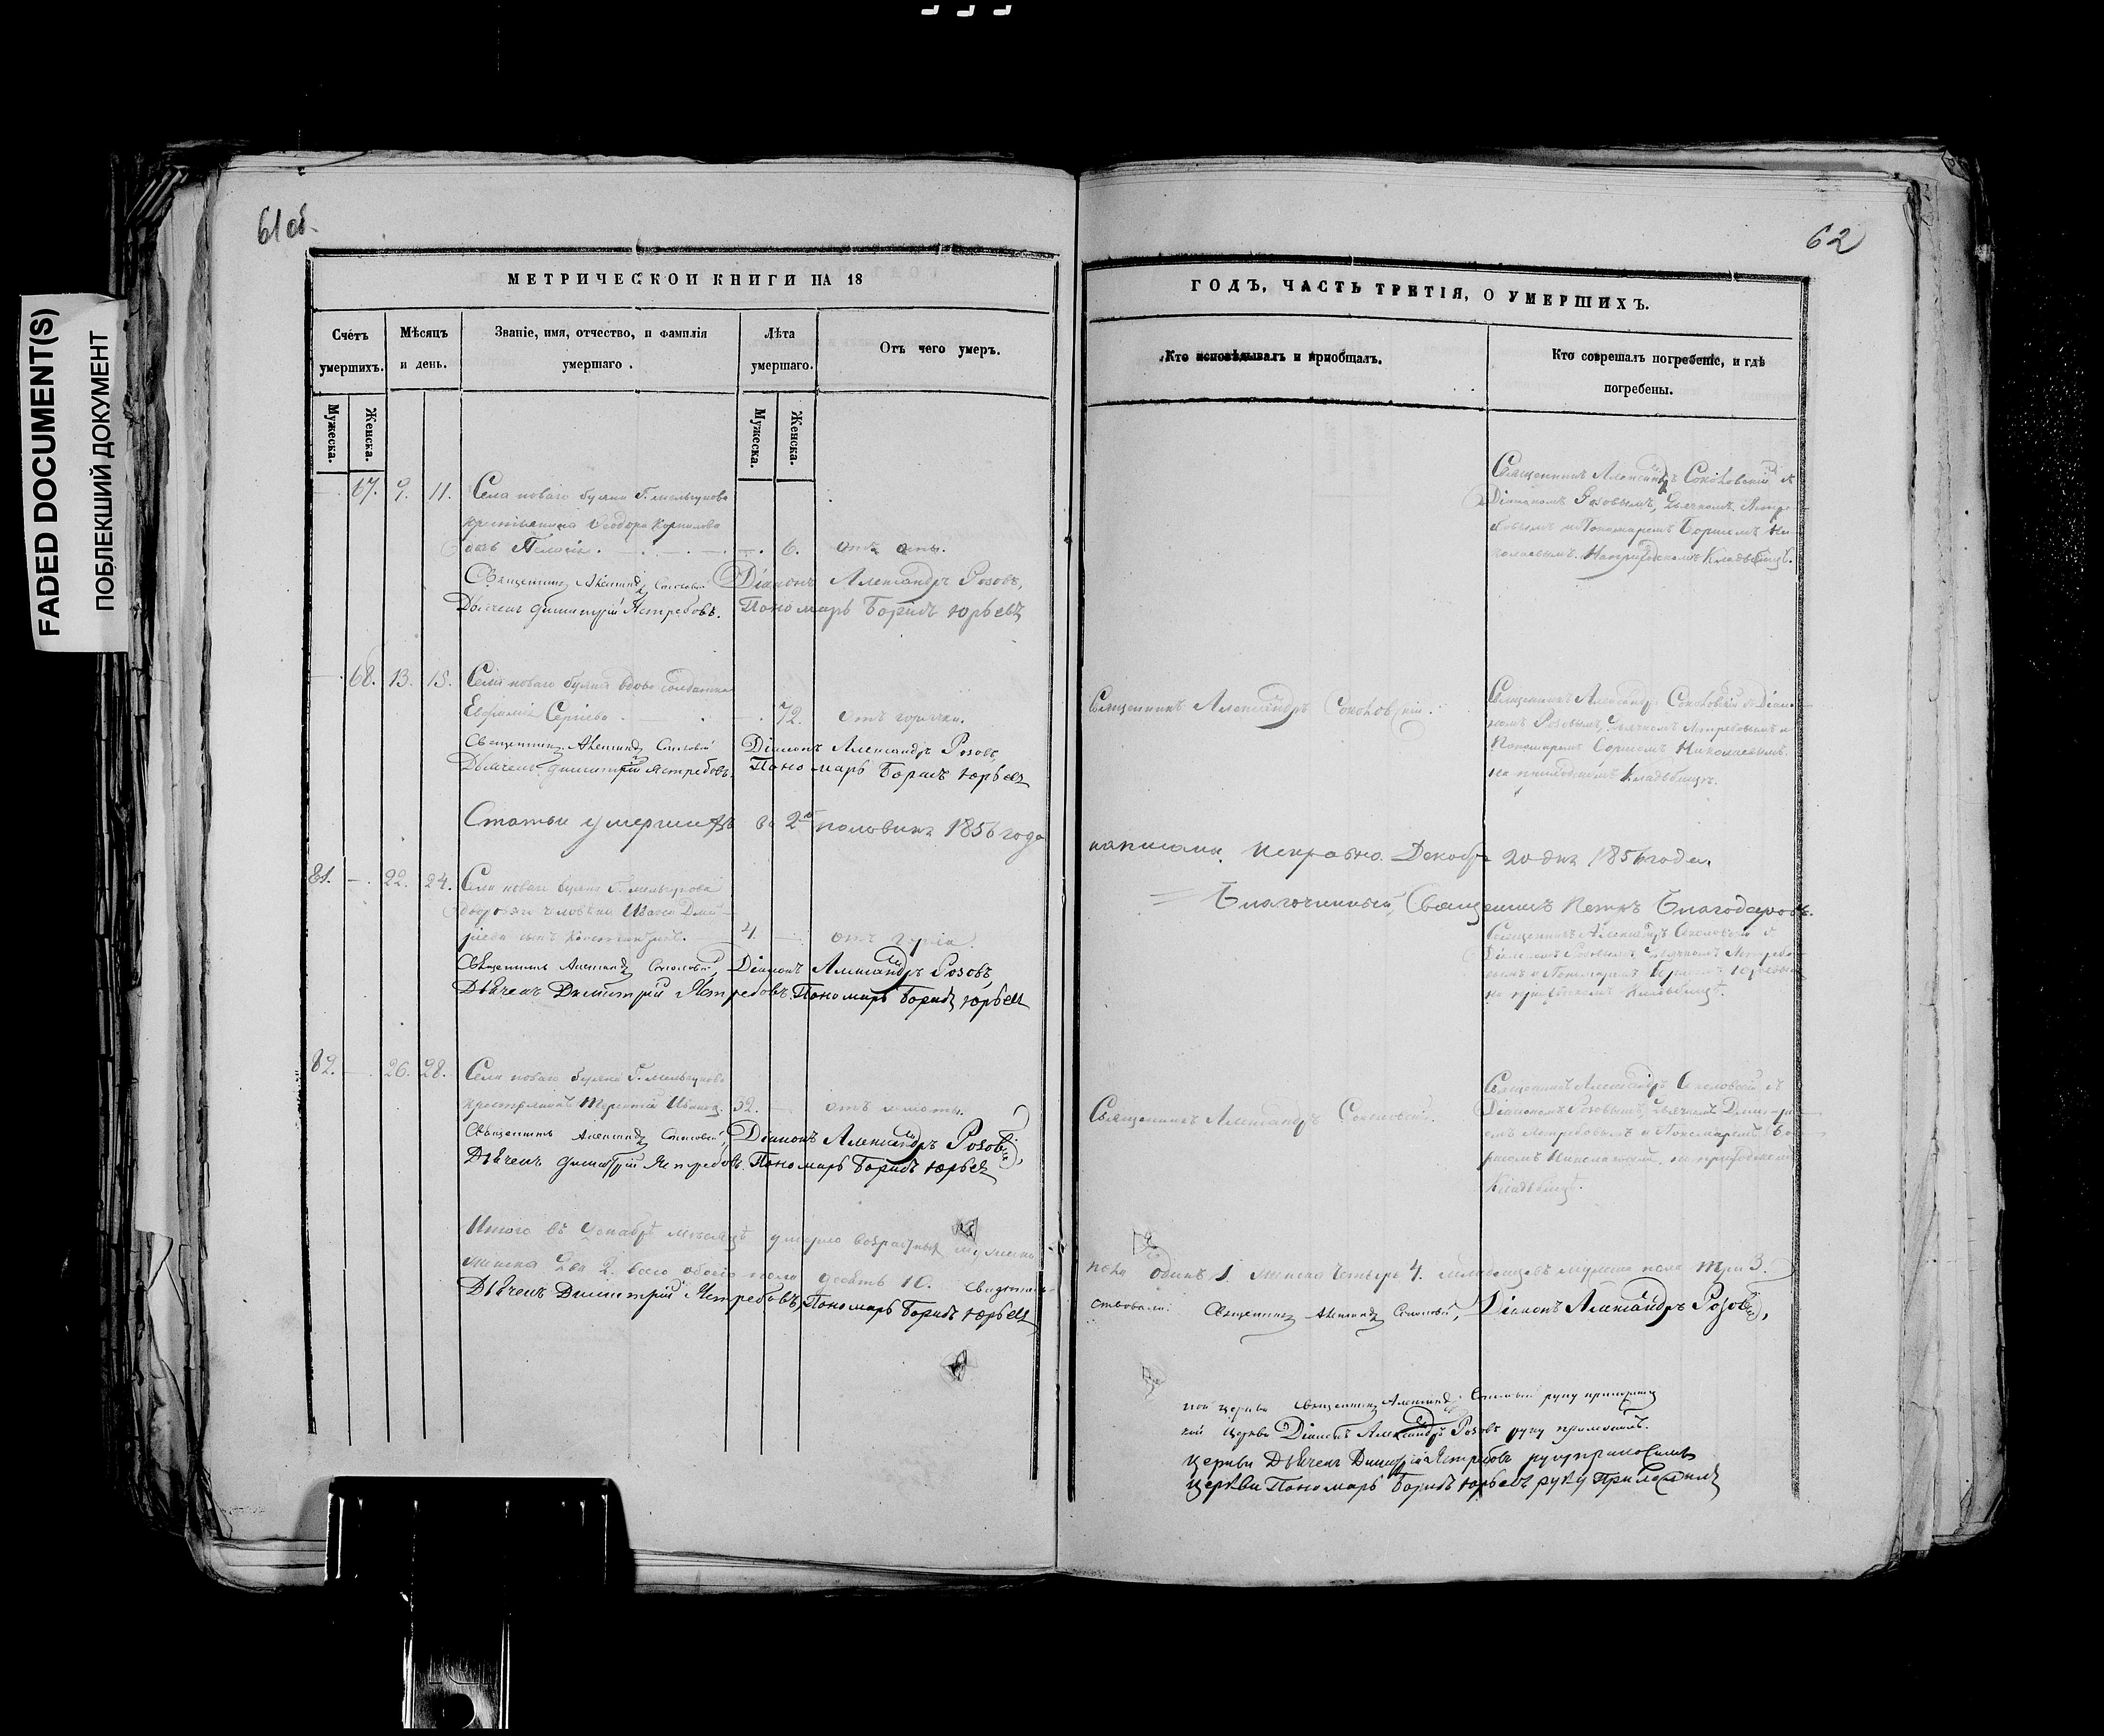 FADED DOCUMENT(S)
ПОБЛЕКШИЙ ДОКУМЕНТ
61 об.
МЕТРИЧЕСКОЙ КНИГИ НА 18
Счетъ умершихъ.
Мѣсяцъ и день.
Званіе, имя, отчество, и фамилія умершаго.
Лѣта умершаго.
Отъ чего умеръ.
Мужеска.
Женска.
Мужеска.
Женска.
67. 9. 11. Села новаго буяна Г. мельгунова
крестьянина Ѳеодора Корнилова
дочь 6. отъ оспы.
Священникъ Александръ Соколовскій Діаконъ Александръ Розовъ,
Дьячекъ Димитрій Ястребовъ. Пономарь Борисъ Юрьевъ
68. 13. 15. Села новаго буяна вдова солдатка
Евфимія Сергіева 72. отъ горячки.
Священникъ Александръ Соколовскій Діаконъ Александръ Розовъ,
Дьячекъ Димитрій Ястребовъ. Пономарь Борисъ Юрьевъ
Статьи умершихъ во 2й половинѣ 1856 года
81. 22. 24. Села новаго буяна Г. мельгунова
двороваго человѣка Ивана
сынъ Константинъ. 4. отъ
Священникъ Александръ Соколовскій, Діаконъ Александръ Розовъ,
Дьячекъ Димитрій Ястребовъ. Пономарь Борисъ Юрьевъ
82. 26. 28. Села новаго буяна Г. мельгунова
крестьянинъ Терентій 32. отъ
Священникъ Александръ Соколовскій, Діаконъ Александръ Розовъ,
Дьячекъ Димитрій Ястребовъ. Пономарь Борисъ Юрьевъ
Итого въ Декабрѣ мѣсяцѣ умерло возрастныхъ мужеска
женска два 2. всего обоего пола десять 10. Свидетель-
Дьячекъ Димитрій Ястребовъ, Пономарь Борисъ Юрьевъ
62
ГОДЪ, ЧАСТЬ ТРЕТІЯ, О УМЕРШИХЪ.
Кто исповѣдывалъ и приобщалъ.
Кто совершалъ погребеніе, и гдѣ погребены.
Священникъ Александръ Соколовскій съ
Діакономъ Розовымъ, Дьячкомъ Ястре-
бовымъ и Пономаремъ Борисомъ Ни-
колаевымъ. На приходскомъ Кладбищѣ.
Священникъ Александръ Соколовскій.
Священникъ Александръ Соколовскій съ Діако-
номъ Розовымъ, Дьячкомъ Ястребовымъ и
Пономаремъ Борисомъ Николаевымъ.
на приходскомъ Кладбищѣ.
написаны исправно. Декабря 20 дня 1856 года.
Благочинный, Священникъ Петръ Благодаровъ.
Священникъ Александръ Соколовскій съ
Діакономъ Розовымъ, Дьячкомъ Ястребо-
вымъ и Пономаремъ Борисомъ Юрьевымъ
на приходскомъ Кладбищѣ.
Священникъ Александръ Соколовскій
Священникъ Александръ Соколовскій съ
Діакономъ Розовымъ, Дьячкомъ Димитрі-
емъ Ястребовымъ и Пономаремъ Бо-
рисомъ Николаевымъ. на приходскомъ
Кладбищѣ.
пола одинъ 1 женска четыре 4. младенцевъ мужеска пола три 3.
ствовали: Священникъ Александръ Соколовскій, Діаконъ Александръ Розовъ,
церкви Священникъ Александръ Соколовскій руку приложилъ
церкви Діаконъ Александръ Розовъ руку приложилъ.
церкви Дьячекъ Димитрій Ястребовъ руку приложилъ
церкви Пономарь Борисъ Юрьевъ руку приложилъ